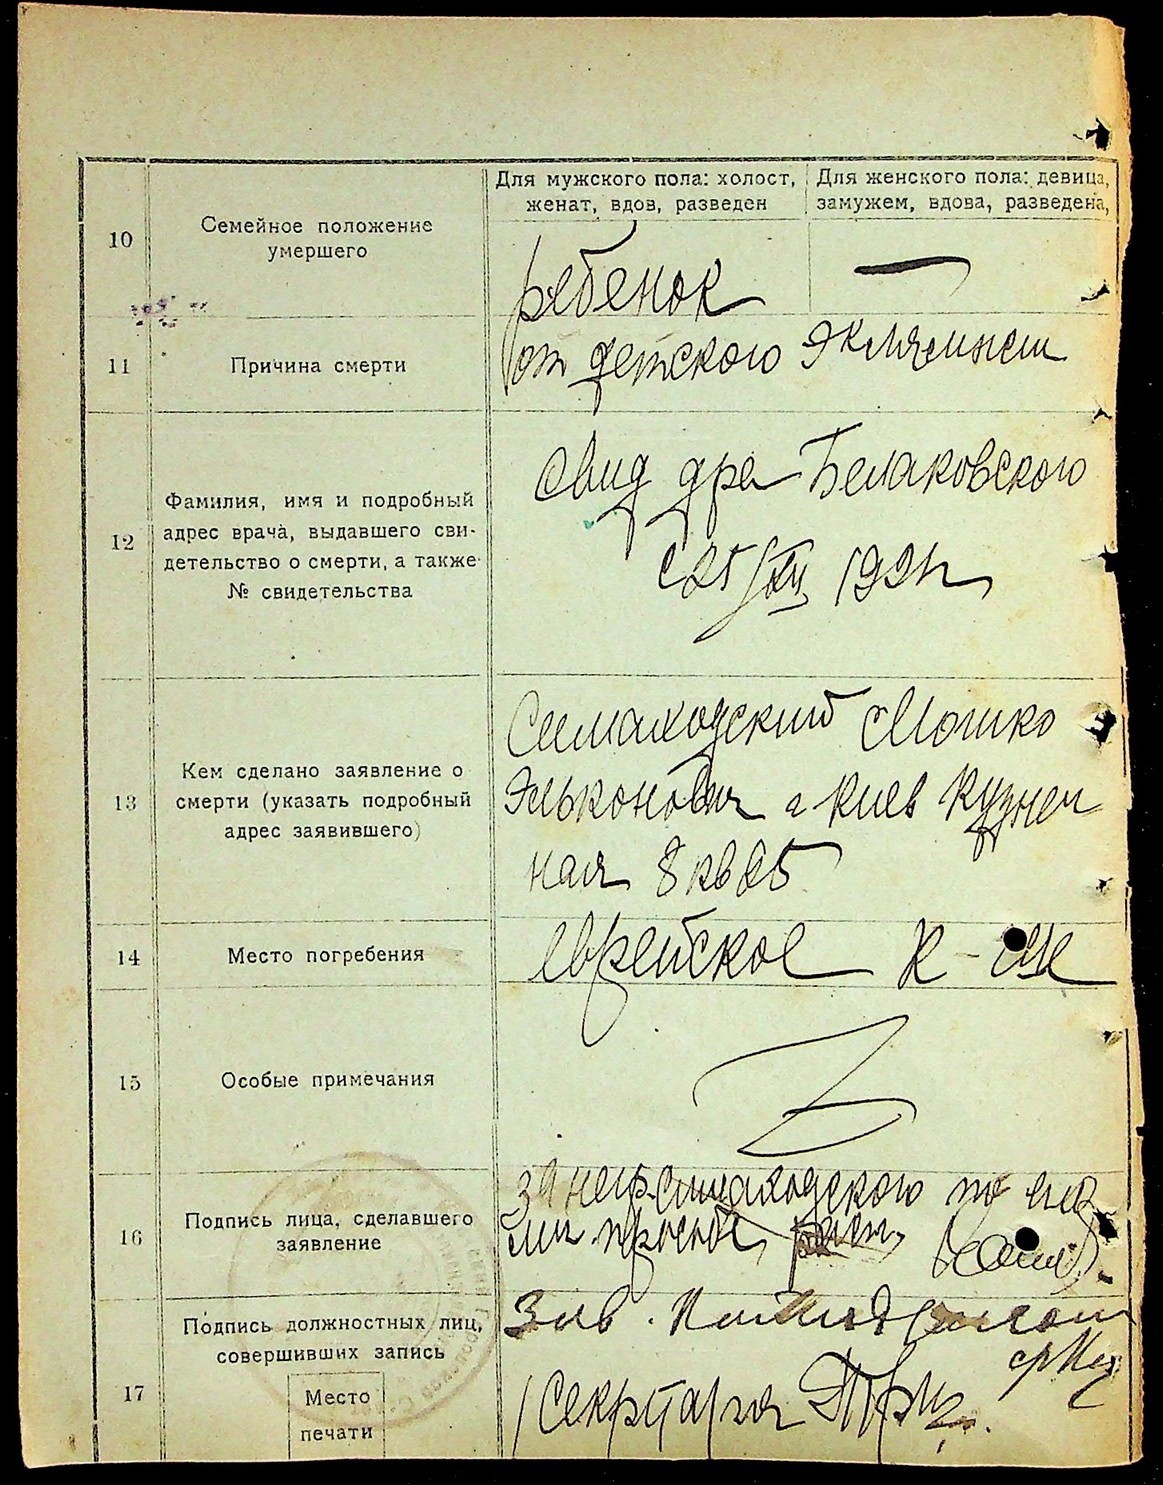 Для мужского пола: холост,
женат, вдов, разведен
Для женского пола: девица,
замужем, вдова, разведена,
10
Семейное положение
умершего
ребенок
—
11
Причина смерти
от детского
12
Фамилия, имя и подробный
адрес врача, выдавшего сви-
детельство о смерти, а также
№ свидетельства
свид дра Белаковского
с 25/XII 192
13
Кем сделано заявление о
смерти (указать подробный
адрес заявившего)
Симаходский Мошко
Эльконович г Киев Кузнеч
ная 8 кв 25
14
Место погребения
еврейское к-ще
15
Особые примечания
16
Подпись лица, сделавшего
заявление
за негр Симаходского по
просьбе
17
Подпись должностных лиц,
совершивших запись
Место
печати
Зав.
Секретарь